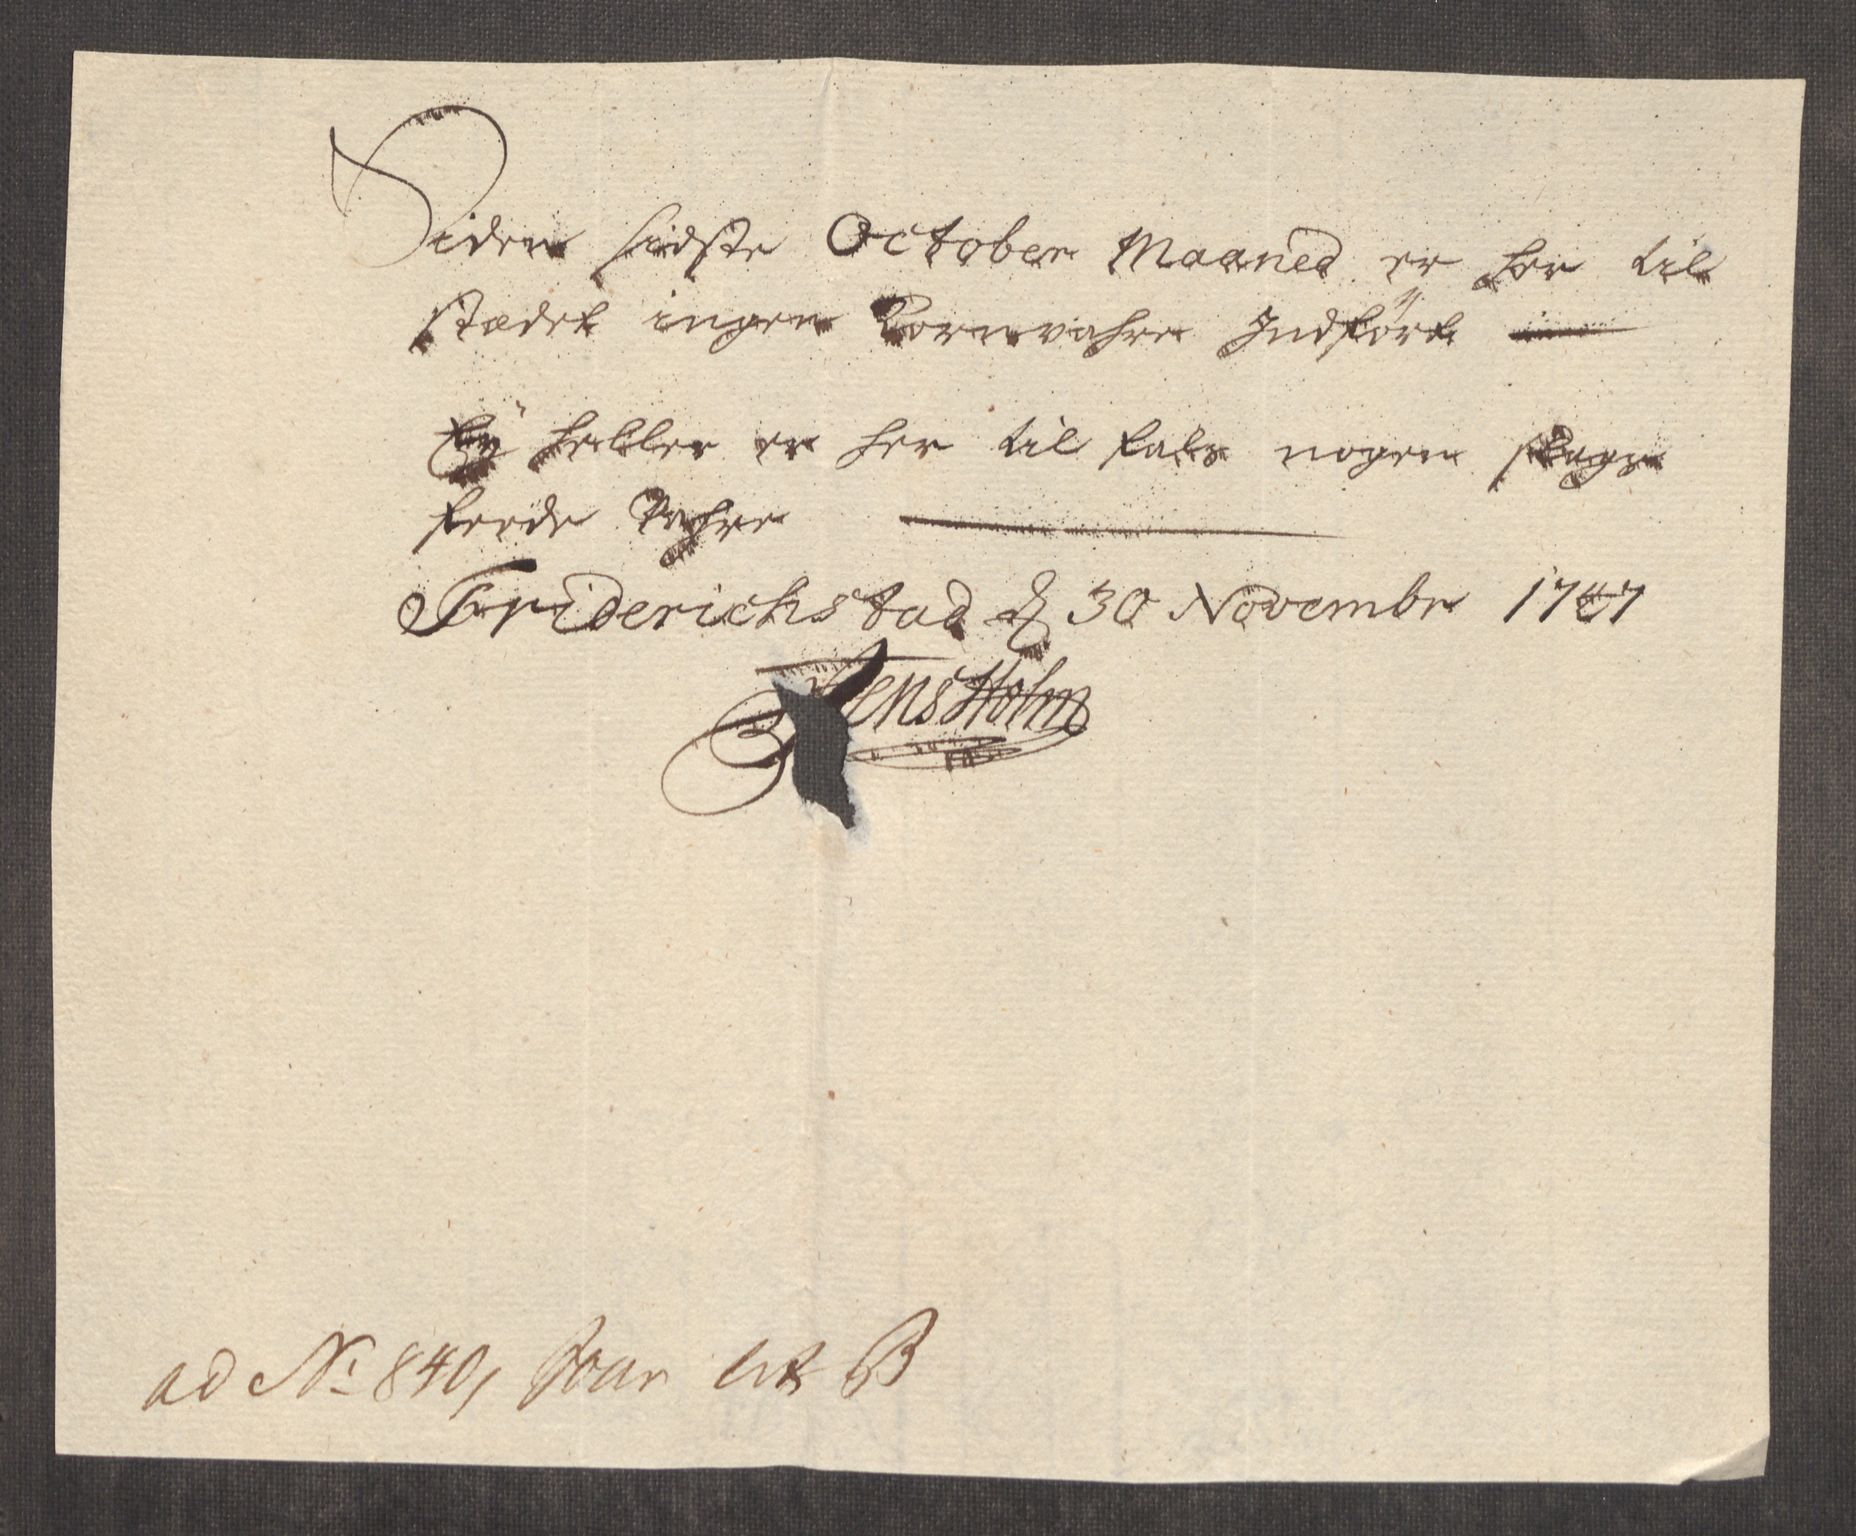 Siden sidste October Maaned er her til
stædet ingen Kornvahre Indført
Ey heller er her til fals nogen
færde Vahre
Friderichstad d 30 Novembr 17
Jens Holm
ad No 840, Svar lit B